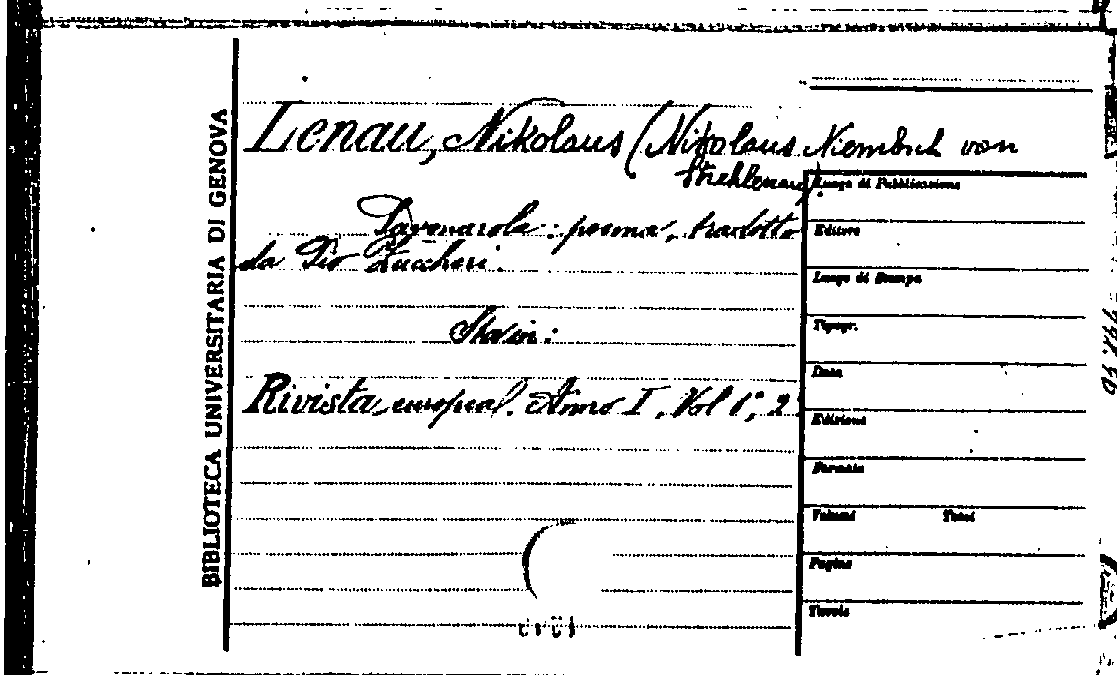 BIBLIOTECA UNIVERSITARIA DI GENOVA
Lenau, Nikolaus (Nikolaus Niembsch von
Strehlenau).
Savonarola: poema, tradotto
da Pio Zuccheri.
Sta in:
Rivista europea. Anno I, Vol 1°, 2
Luogo di Pubblicazione
Editore
Luogo di Stampa
Tipogr.
Data
Edizione
Formato
Volumi Tomi
Pagine
Tavole